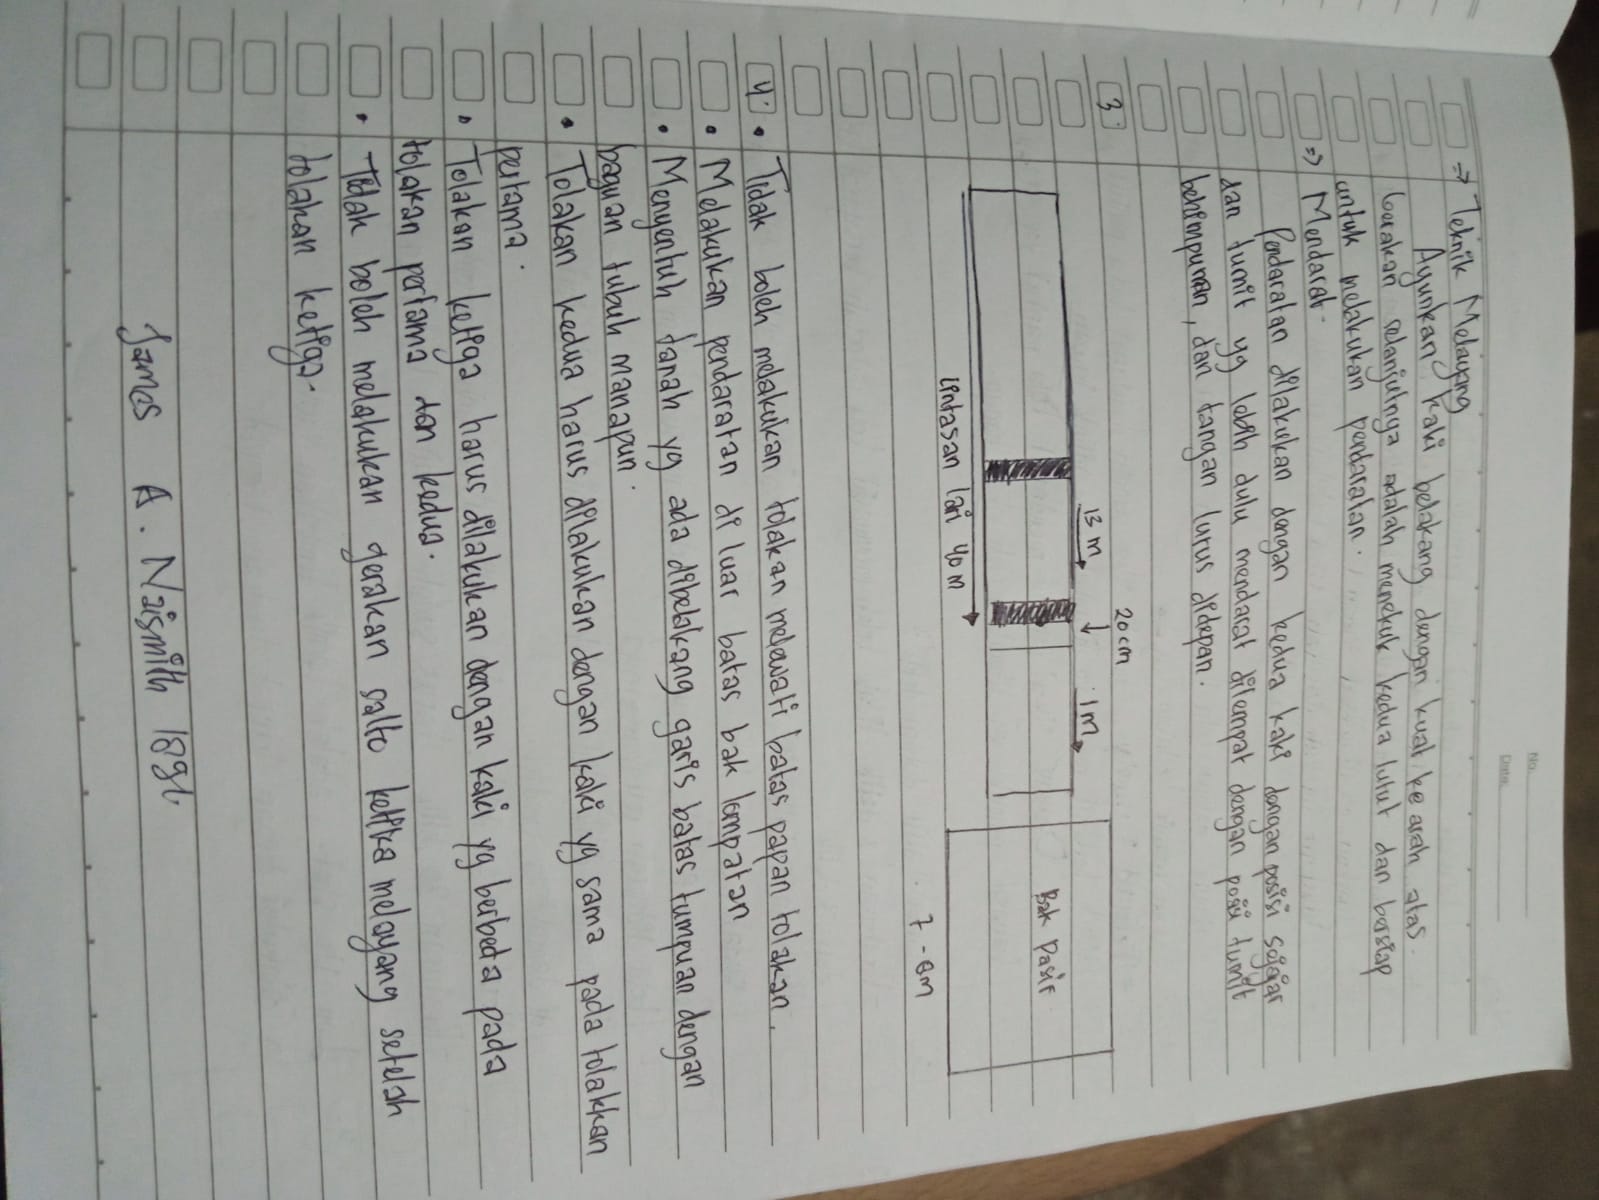 No.
Date:
=> Teknik Melayang
Ayunkan kaki belakang dengan kuat ke arah atas.
Gerakan selanjutnya adalah menekuk kedua lutut dan bersiap
untuk melakukan pendaratan.
=> Mendarat.
Pendaratan dilakukan dengan kedua kaki dengan posisi sejajar
dan tumit yg lebih dulu mendarat ditempat dengan posisi tumit
behimpunan, dan tangan lurus didepan.
3.
20 cm
13 m
1 m
Bak Pasir
Lintasan lari 40 m
7 - 8m
4. • Tidak boleh melakukan tolakan melewati batas papan tolakan.
• Melakukan pendaratan di luar batas bak lompatan
• Menyentuh tanah yg ada dibelakang garis batas tumpuan dengan
baguan tubuh manapun.
• Tolakan kedua harus dilakukan dengan kaki yg sama pada tolakkan
pertama.
• Tolakan ketiga harus dilakukan dengan kaki yg berbeda pada
tolakan pertama dan kedua.
• Tidak boleh melakukan gerakan salto ketika melayang setelah
tolakan ketiga.
James A. Naismith